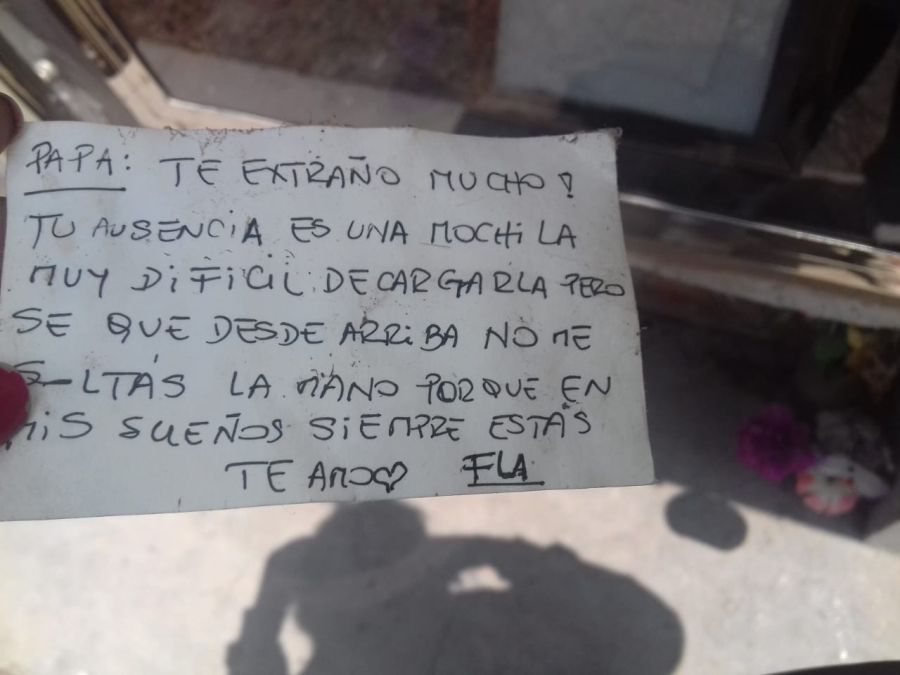 PAPA: TE EXTRAÑO MUCHO!
TU AUSENCIA ES UNA MOCHILA
MUY DIFICIL DE CARGARLA PERO
SE QUE DESDE ARRIBA NO ME
LA MANO PORQUE EN
MIS SUEÑOS SIEMPRE ESTÁS
TE AMO♡ FLA